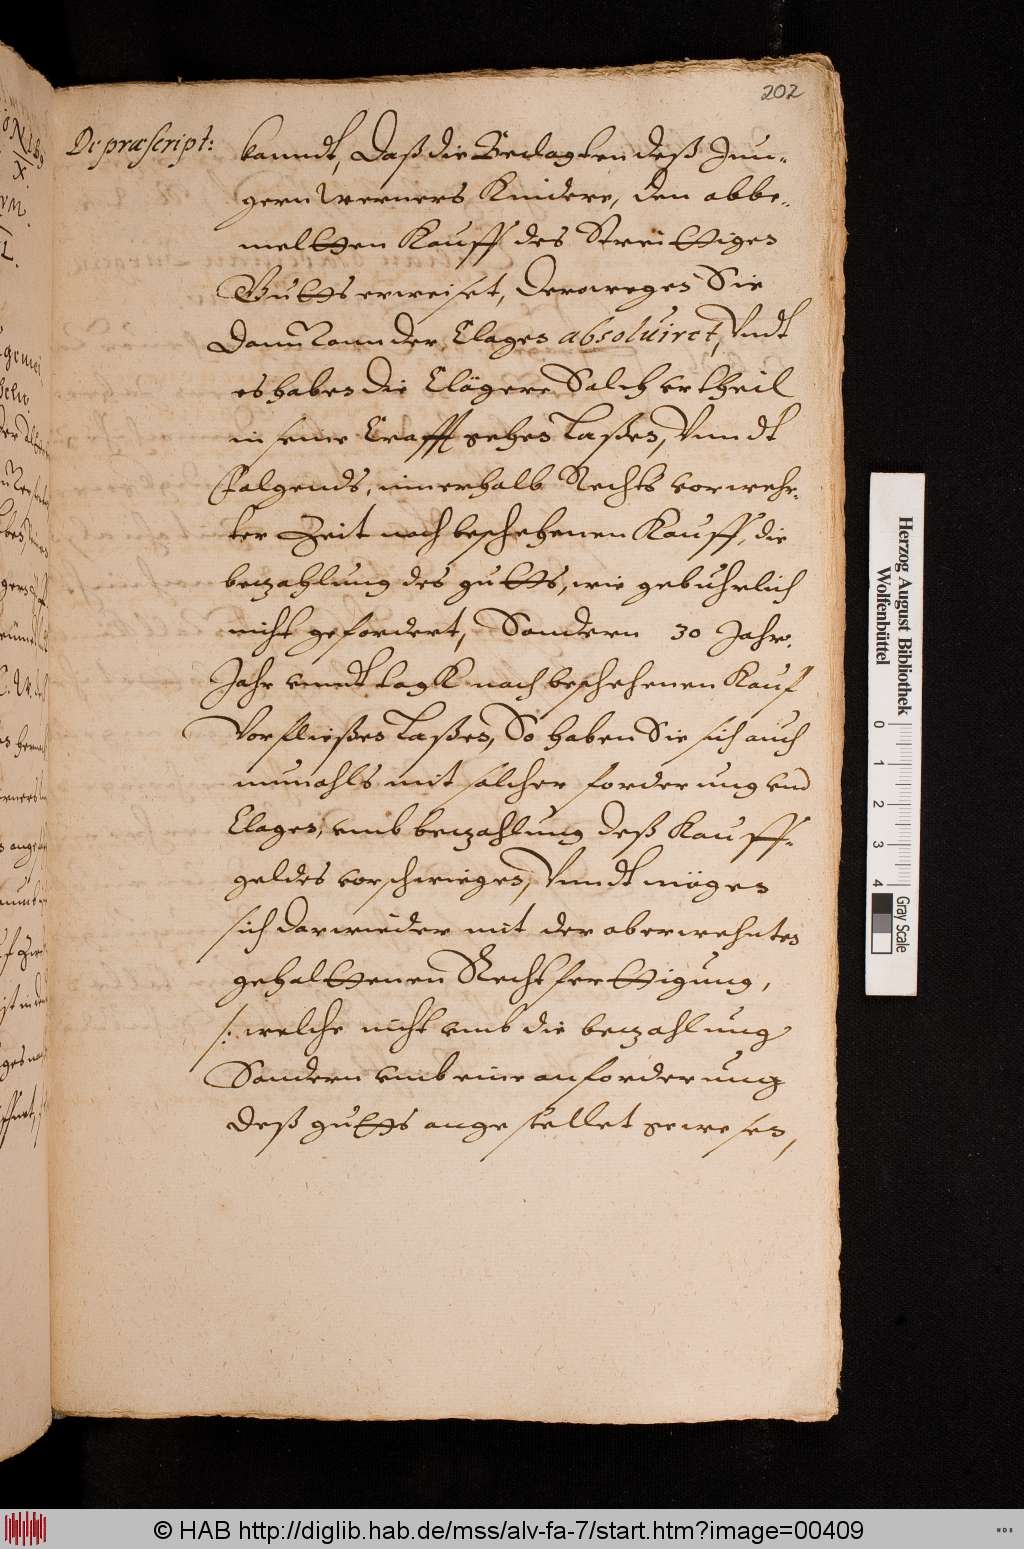 202
De præscript:
kanndt, Daß die Beclagten deß Jun-
gern Werners Kindere, den abbe-
meltten Kauff des Streittigen
Gutts erweiset, Derowegen Sie
Dann von der Clagen absoluiret, Vndt
es haben die Clägere Solch vrtheil
in seine Crafft gehen Laßen, Vnndt
Folgends, innerhalb Rechts vorwehr-
ter Zeit nach beschehenen Kauff, die
bezahlung des gutts, wie gebuhrlich
nicht gefordert, Sondern 30 Jahr,
Jahr vnndt tagk nach beschehenen Kauf
Vorfließen Laßen, So haben Sie sich auch
nunmahls mit solcher forderung vnd
Clagen, vmb bezahlung deß Kauff-
geldes vorschwiegen, Vnndt mögen
sich darwieder mit der oberwehnten
gehalttenen Rechtferttigung,
/: welche nicht vmb die bezahlung
Sondern vmb eine anforderung
deß gutts angestellet gewesen,
Herzog August Bibliothek
Wolfenbüttel
0 1 2 3 4
Gray Scale
© HAB http://diglib.hab.de/mss/alv-fa-7/start.htm?image=00409